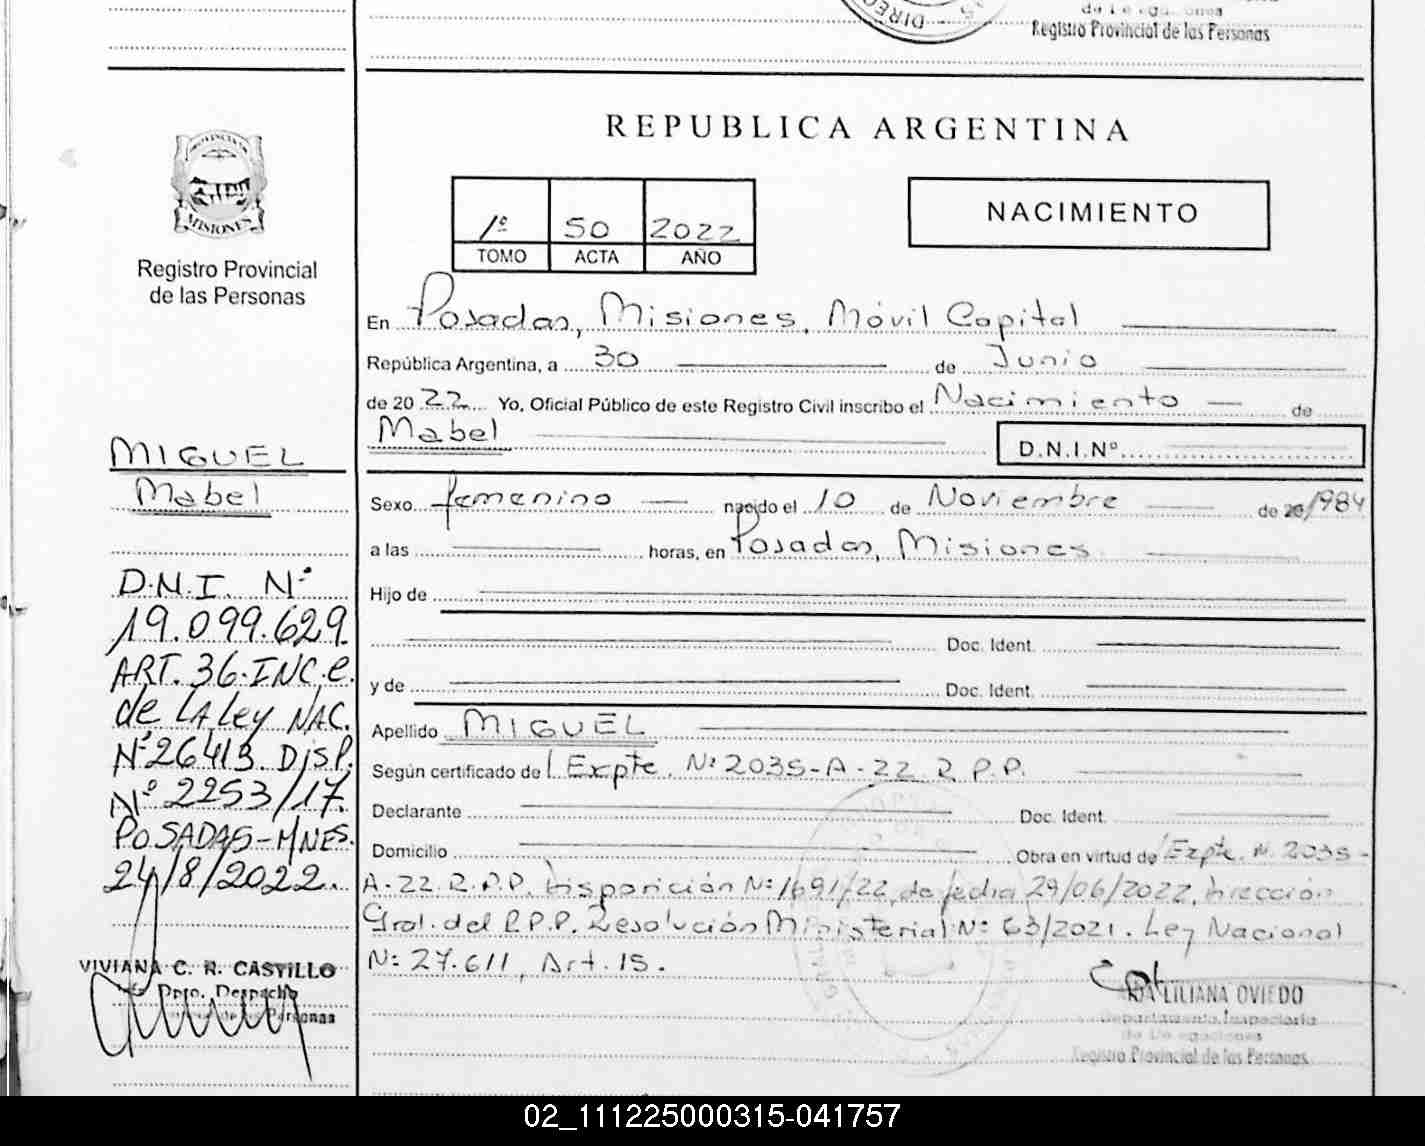 de Delegaciones
Registro Provincial de las Personas
REPUBLICA ARGENTINA
MISIONES
Registro Provincial
de las Personas
1º 50 2022
TOMO ACTA AÑO
NACIMIENTO
En Posadas, Misiones, Móvil Capital
República Argentina, a 30 de Junio
de 20 22 Yo, Oficial Público de este Registro Civil inscribo el Nacimiento de
Mabel
D.N.I.Nº
MIGUEL
Mabel
D.N.I. Nº
19.099.629.
ART. 36.INC.e.
de LA Ley NAC.
Nº26413. Disp.
Nº 2253/17.
POSADAS-MNES.
24/8/2022.
VIVIANA C. R. CASTILLO
Dpto. Despacho
Personas
Sexo femenino nacido el 10 de Noviembre de 20/1984
a las horas, en Posadas, Misiones
Hijo de
Doc. Ident.
y de Doc. Ident.
Apellido MIGUEL
Según certificado de Expte. Nº 2035-A-22 R.P.P.
Declarante Doc. Ident.
Domicilio Obra en virtud de Expte. Nº 2035-
A-22.R.P.P. Disposición Nº 1691/22, de fecha 29/06/2022, Dirección
Gral. del R.P.P. Resolución Ministerial Nº 63/2021. Ley Nacional
Nº 27.611, Art. 15.
LILIANA OVIEDO
Departamento Inspectoría
de Delegaciones
Registro Provincial de las Personas
02_111225000315-041757